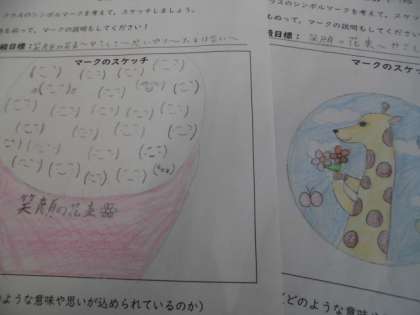 クラスのシンボルマークを考えて、スケッチしましょう。
もぬって、マークの説明もしてください!
級目標:笑顔の花束〜やさしさ〜思いやり〜
マークのスケッチ
笑顔の花束
のような意味や思いが込められているのか)
ラスのシンボルマークを考えて、スケッチ
ぬって、マークの説明もしてくださ
級目標:笑顔の花束〜やさ
マークのス
(どのような意味や思い